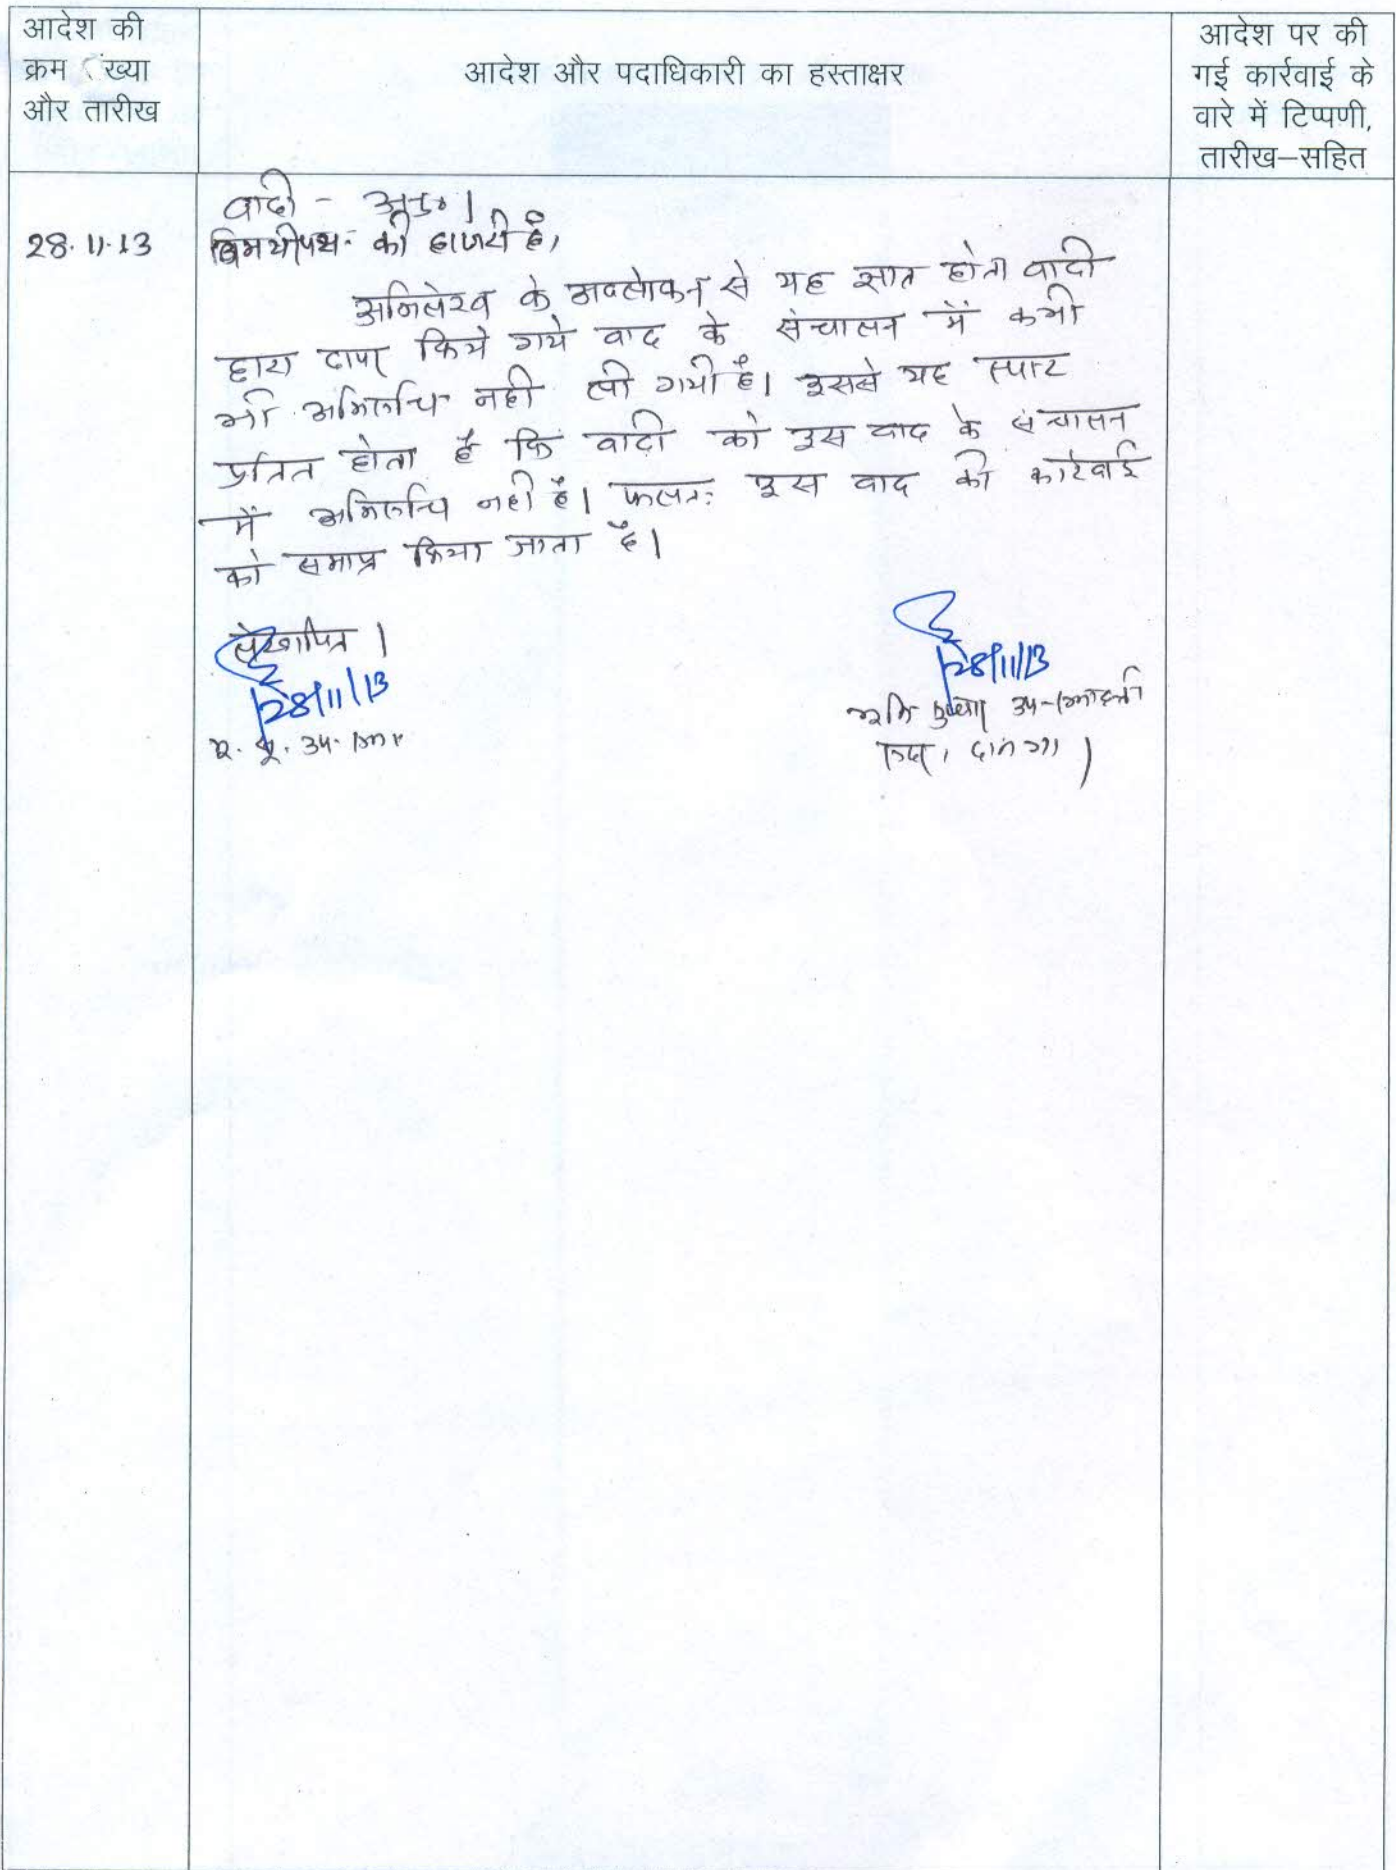 आदेश की
क्रम ंख्या
और तारीख
आदेश और पदाधिकारी का हस्ताक्षर
आदेश पर की
गई कार्रवाई के
वारे में टिप्पणी,
तारीख–सहित
28.11.13
वादी - अनु० ।
की हाजरी है,
अभिलेख के अवलोकन से यह ज्ञात होता वादी
द्वारा दायर किये गये वाद के संचालन में कभी
भी अभिरूचि नही ली गयी है। इससे यह स्पष्ट
प्रतित होता है कि वादी को इस वाद के संचालन
में अभिरूचि नही है। फलतः इस वाद की कार्रवाई
को समाप्त किया जाता है।
लेखापित ।
28/11/13
28/11/13
भूमि सुधार उप-समाहर्ता
भू. सु. उप-